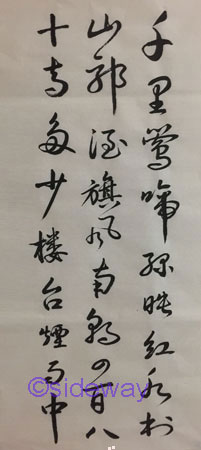 千里鶯啼绿映红水村
山郭酒旗风南朝四百八
十寺多少楼台煙雨中
©sideway